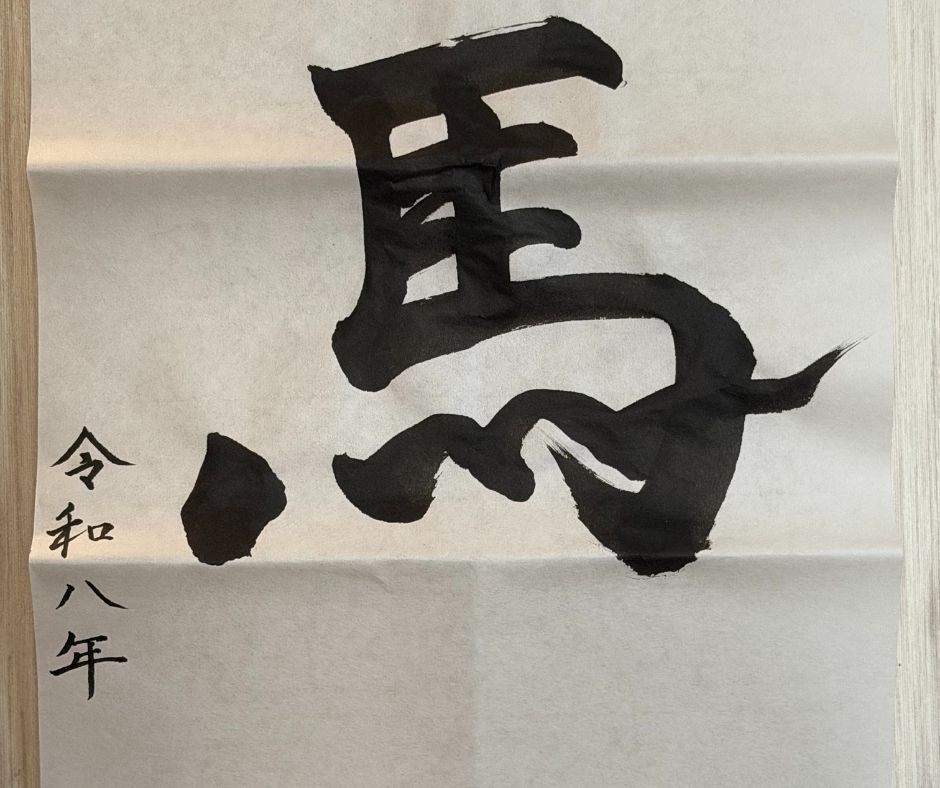 馬
令和八年